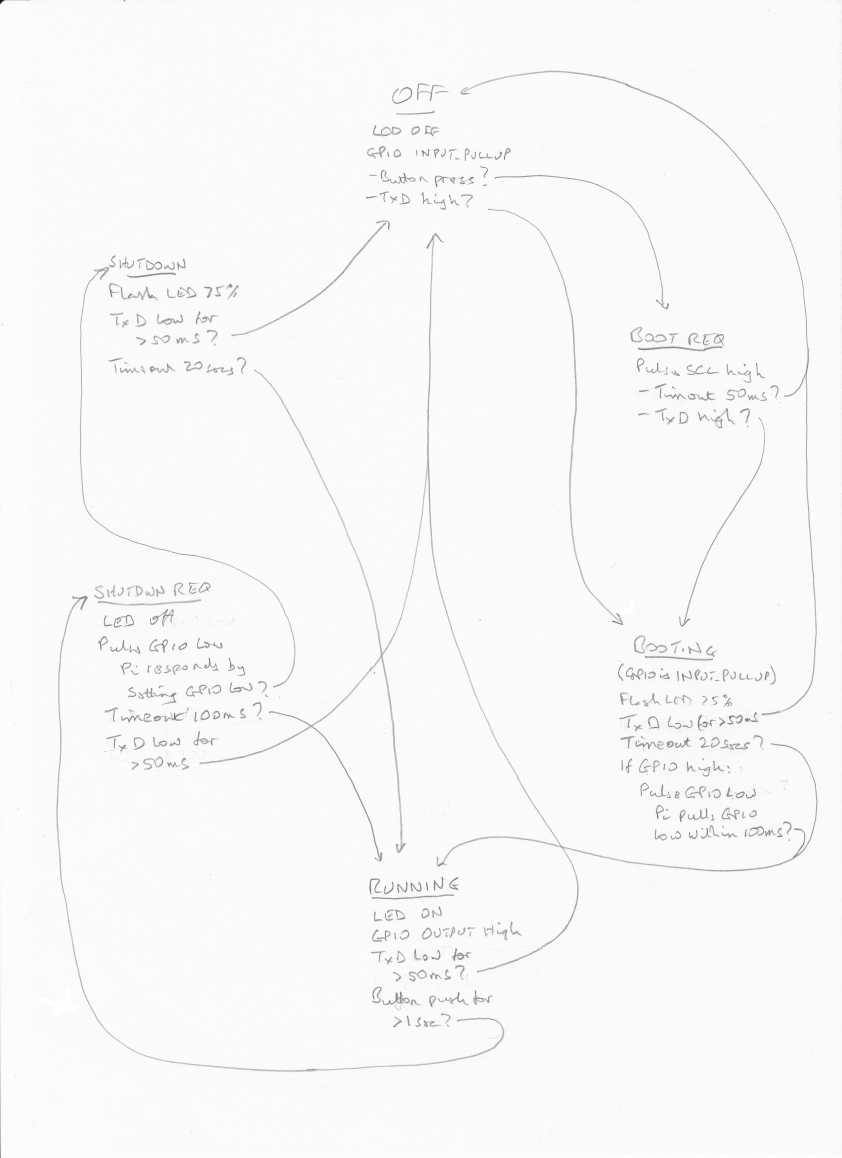 OFF
LED OFF
GPIO INPUT_PULLUP
- Button press?
- TxD high?
SHUTDOWN
Flash LED 75%
TxD Low for
>50ms?
Timeout 20secs?
BOOT REQ
Pulse SCL high
- Timeout 50ms?
- TxD high?
SHUTDWN REQ
LED off
Pulse GPIO Low
Pi responds by
Setting GPIO Low?
Timeout 100ms?
TxD Low for
>50ms
BOOTING
(GPIO is INPUT_PULLUP)
Flash LED 25%
TxD Low for >50ms
Timeout 20secs?
If GPIO high:
Pulse GPIO Low
Pi pulls GPIO
Low within 100ms?
RUNNING
LED ON
GPIO OUTPUT High
TxD Low for
>50ms?
Button push for
>1sec?